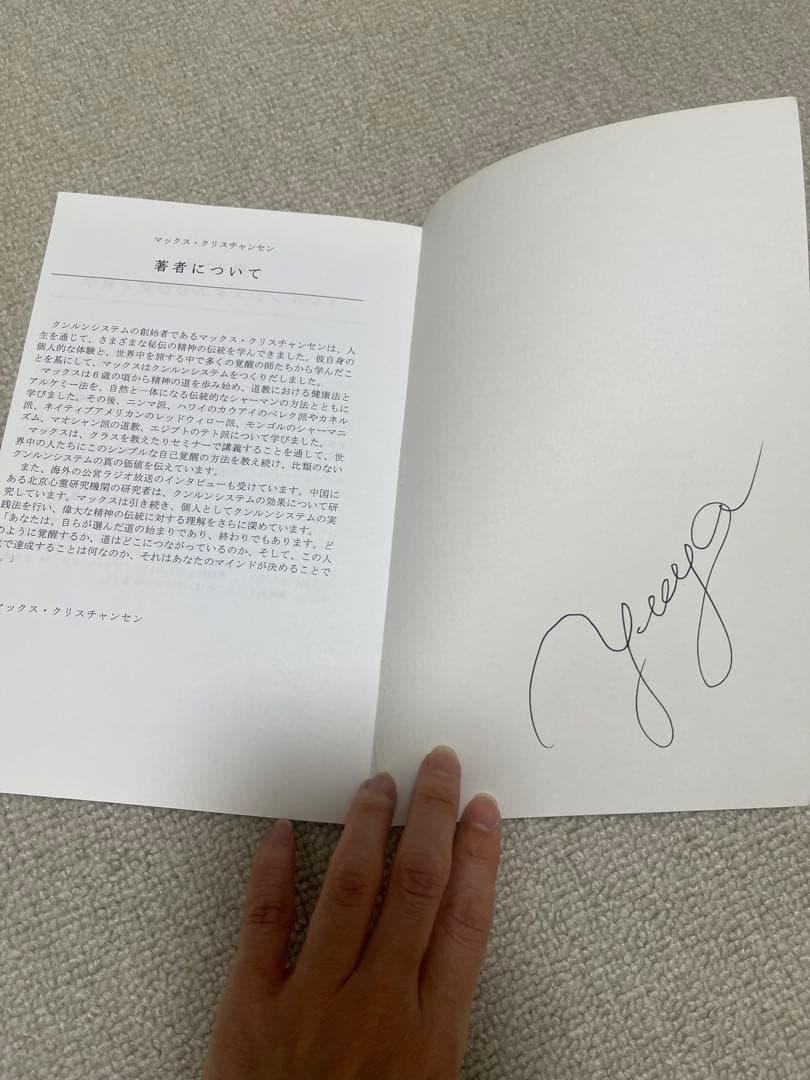 マックス・クリスチャンセン
著者について
クンルンシステムの創始者であるマックス・クリスチャンセンは、人
生を通じて、さまざまな秘伝の精神の伝統を学んできました。彼自身の
個人的な体験と、世界中を旅する中で多くの覚醒の師たちから学んだこ
とを基にして、マックスはクンルンシステムをつくりだしました。
マックスは6歳の頃から精神の道を歩み始め、道教における健康法と
アルケミー法を、自然と一体になる伝統的なシャーマンの方法とともに
学びました。その後、ニンマ派、ハワイのカウアイのペレク派やカネル
派、ネイティブアメリカンのレッドウィロー派、モンゴルのシャーマニ
ズム、マオシャン派の道教、エジプトのテト派について学びました。
マックスは、クラスを教えたりセミナーで講義することを通して、世
界中の人たちにこのシンプルな自己覚醒の方法を教え続け、比類のない
クンルンシステムの真の価値を伝えています。
また、海外の公営ラジオ放送のインタビューも受けています。中国に
ある北京心霊研究機関の研究者は、クンルンシステムの効果について研
究しています。マックスは引き続き、個人としてクンルンシステムの実
践法を行い、偉大な精神の伝統に対する理解をさらに深めています。
「あなたは、自らが選んだ道の始まりであり、終わりでもあります。ど
のように覚醒するか、道はどこにつながっているのか、そして、この人
で達成することは何なのか、それはあなたのマインドが決めることで
。」
マックス・クリスチャンセン